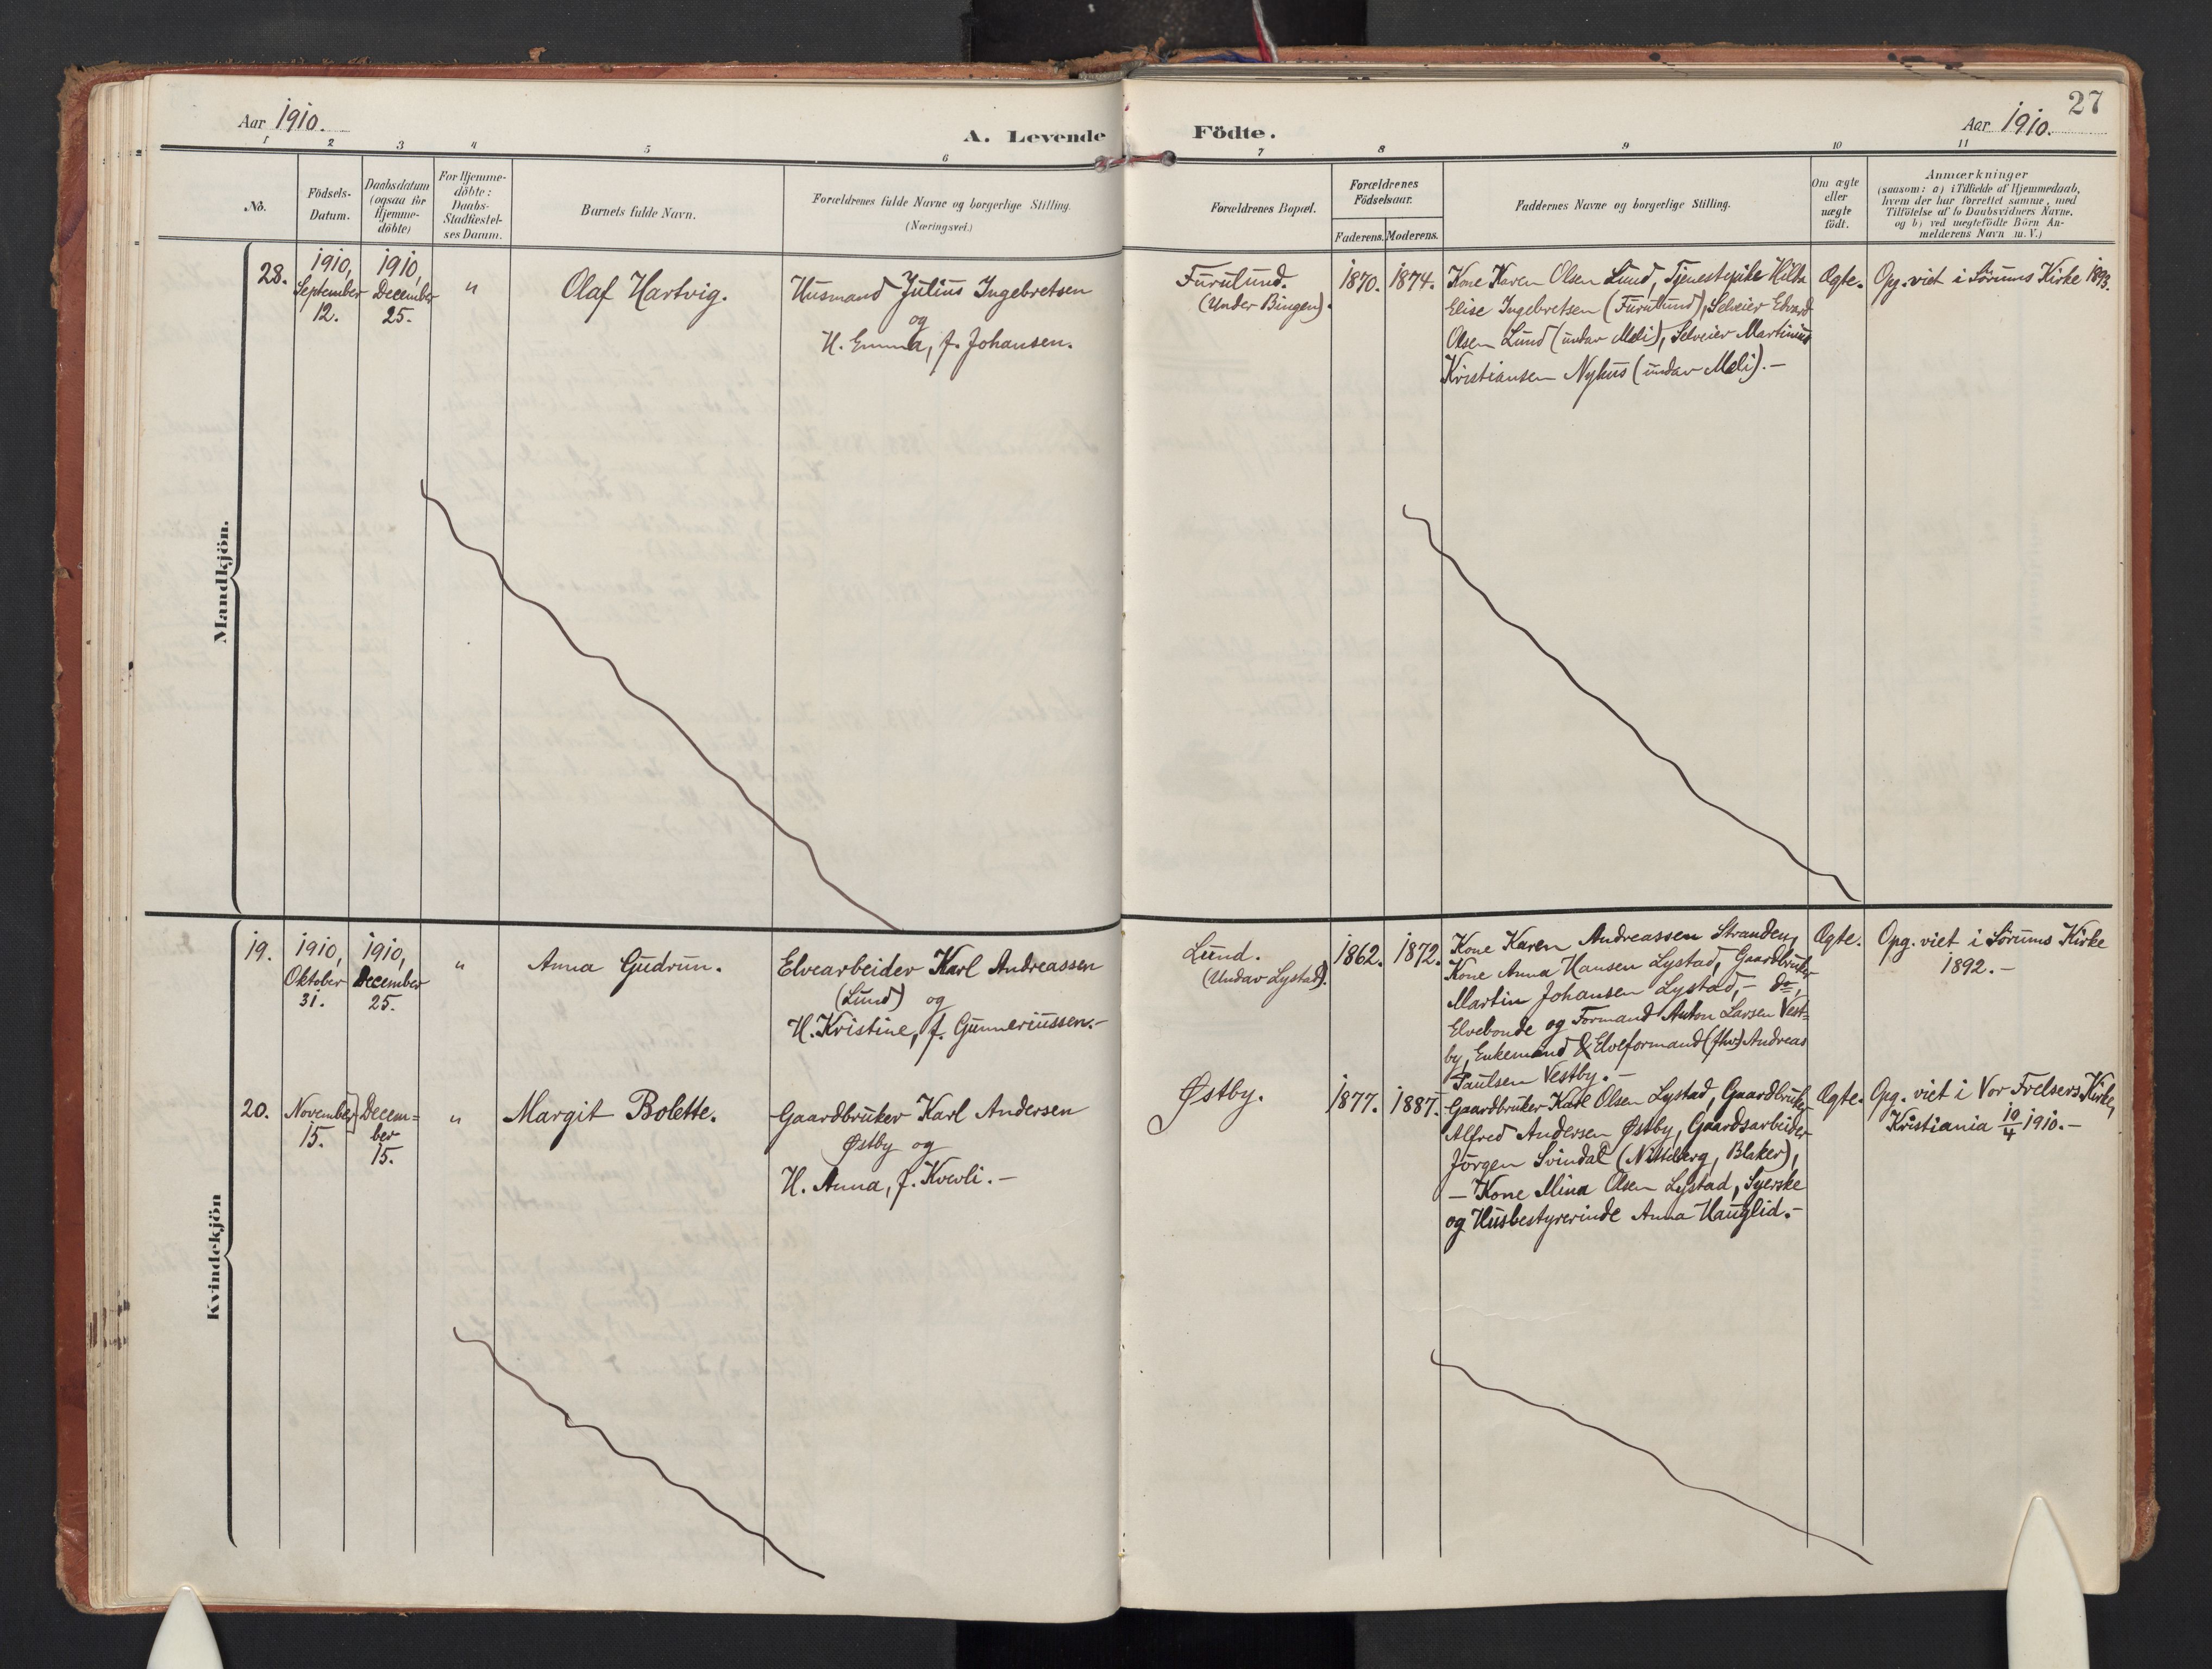 Aar 1910.
A. Levende Födte.
Aar 1910.
27
1 2 3 4 5 6 7 8 9 10 11
No.
Födsels-
Datum.
Daabsdatum
(ogsaa for
Hjemme-
döbte)
For Hjemme-
döbte:
Daabs-
Stadfæstel-
ses Datum.
Barnets fulde Navn.
Forældrenes fulde Navne og borgerlige Stilling.
(Næringsvei.)
Forældrenes Bopæl.
Forældrenes
Födselsaar.
Faderens. Moderens.
Faddernes Navne og borgerlige Stilling.
Om ægte
eller
uægte
födt.
Anmærkninger
(saasom: a) i Tilfælde af Hjemmedaab,
hvem der har forrettet samme, med
Tilföielse af to Daabsvidners Navne,
og b) ved uægtefödte Börn An-
melderens Navn m. V.)
Mandkjön.
28.
1910,
September
12.
1910,
December
25.
"
Olaf Hartvig.
Husmand Julius Ingebretsen
og
H. Emma, f. Johansen.
Furulund.
(Under Bingen).
1870.
1874.
Kone Karen Olsen Lund, Tjenestepike Hilda
Elise Ingebretsen (Furulund), Selveier Edvard
Olsen Lund (under Meli), Selveier Martinius
Kristiansen Nyhus (under Meli). –
Ægte.
Opg. viet i Sörums Kirke 1893.
Kvindekjön
19.
1910,
Oktober
31.
1910,
December
25.
"
Anna Gudrun.
Elvearbeider Karl Andreassen
(Lund) og
H. Kristine, f. Gunneriussen. –
Lund.
(Under Lystad).
1862.
1872.
Kone Karen Andreassen Stranden,
Kone Anna Hansen Lystad, Gaardbruker
Martin Johansen Lystad, – do,
Elvebonde og Formand Anton Larsen Vest=
by, Enkemand & Elveformand (fhv) Andreas
Paulsen Vestby. –
Ægte.
Opg. viet i Sörums Kirke
1892. –
20.
November
15.
Decem=
ber
15.
"
Margit Bolette.
Gaardbruker Karl Andersen
Østby og
H. Anna, f. Kverli. –
Østby.
1877.
1887.
Gaardbruker Karl Olsen Lystad, Gaardbruker
Alfred Andersen Østby, Gaardsarbeider
Jörgen Svindal (Nitteberg, Blaker),
– Kone Mina Olsen Lystad, Syerske
og Husbestyrerinde Anna Hauglid. –
Ægte.
Opg. viet i Vor Frelsers Kirke,
Kristiania 10/4 1910. –